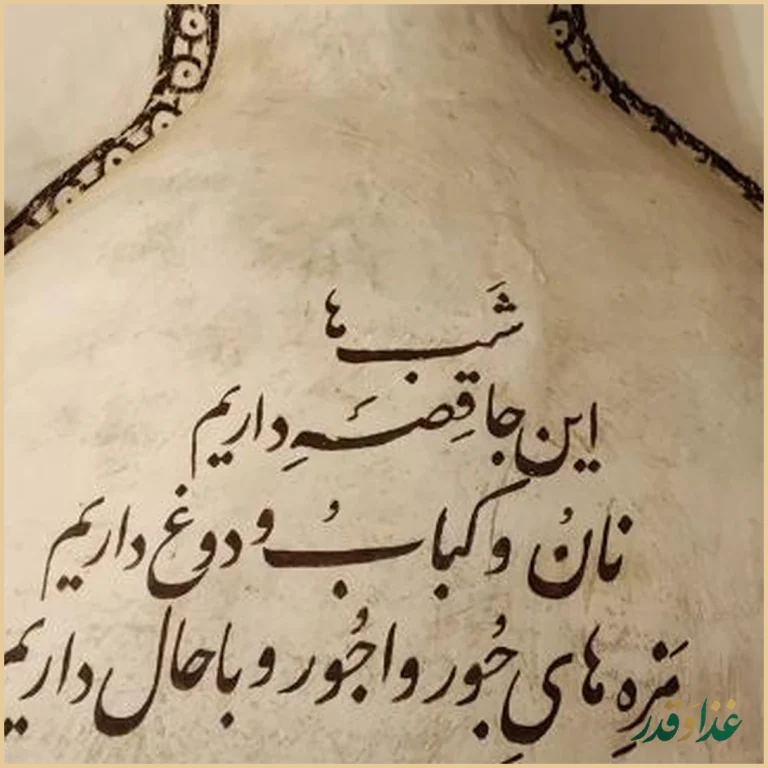 شَب ها
این جا قِصّهِ داریم
نانُ و کبابُ و دوغ داریم
مَزهِ هایِ جُور واجُور و باحال داریم
غذا و قدر